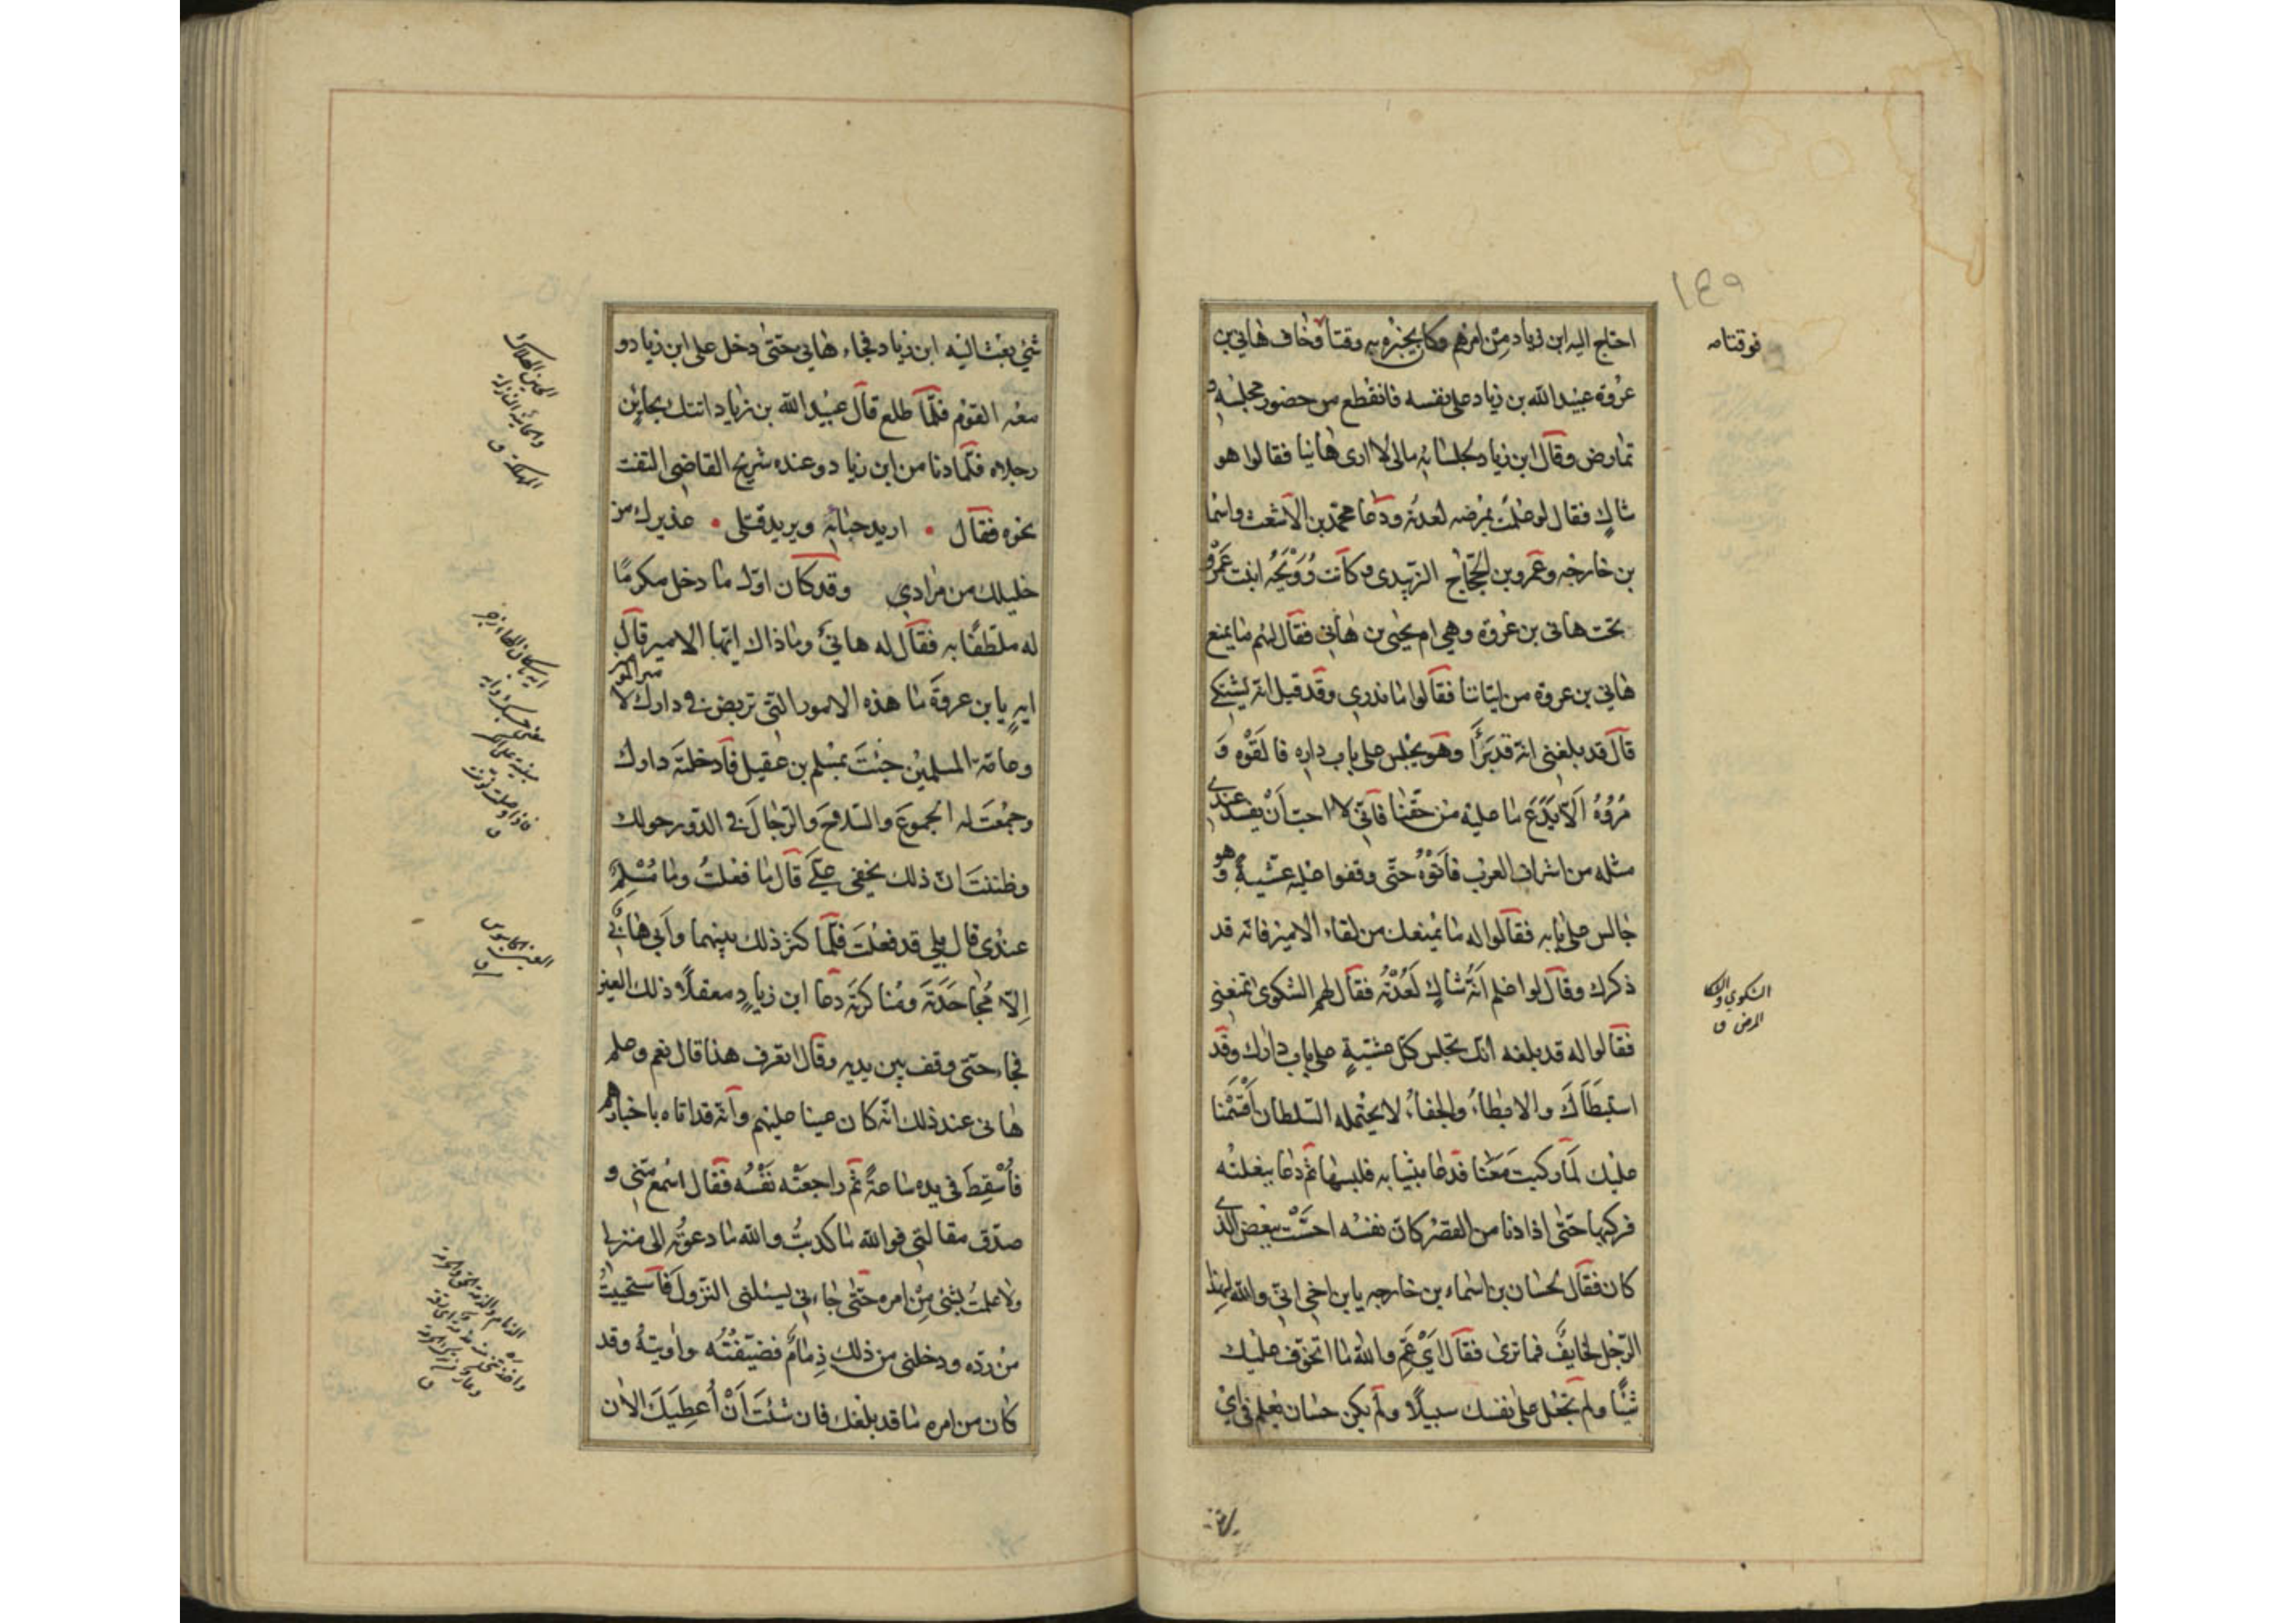 ١٤٩
احتاج اليه ابن زياد من امرهم وكان يخبره به وقتا وخاف هاني بن
فوقتا مه
عروة عبيد الله بن زياد على نفسه فانقطع من حضور مجلسه و
تمارض وقال ابن زياد لجلسائه مالى لا ارى هانيا فقالوا هو
شاك فقال لو علمت بمرضه لعدته ودعا محمد بن الاشعث واسما
بن خارجه وعمرو بن الحجاج الزبيدى وكانت رويحه ابنت عمرو
تحت هانى بن عروة وهي ام يحيى بن هانى فقال لهم ما يمنع
هاني بن عروة من اتياننا فقالوا ما ندري وقد قيل انه يشتكي
قال قد بلغنى انه قد برأ وهو يجلس على باب داره فالقوه و
مروه الا يدع ما عليه من حقنا فانى لا احب ان يفسد عندي
مثله من اشراف العرب فاتوه حتى وقفوا عليه عشية وهو
جالس على بابه فقالوا له ما يمنعك من لقاء الامير فانه قد
ذكرك وقال لو اعلم انه شاك لعدته فقال لهم الشكوى تمنعني
الشكوي والشكا
المرض ق
فقالوا له قد بلغه انك تجلس كل عشية على باب دارك وقد
استبطأك والابطاء والجفاء لا يحتمله السلطان اقسمنا
عليك لما ركبت معنا فدعا بثيابه فلبسها ثم دعا ببغلته
فركبها حتى اذا دنا من القصر كان نفسه احسّت ببعض الذي
كان فقال لحسان بن اسماء بن خارجه يا بن اخي انى والله لهذا
الرجل لخايف فما ترى فقال اي عم والله ما اتخوف عليك
شيئا ولم تجعل على نفسك سبيلا ولم يكن حسان يعلم فى اي
شئ بعث اليه ابن زياد فجاء هاني حتى دخل على ابن زياد و
معه القوم فلما طلع قال عبيد الله بن زياد اتتك بحاين
رجلاه فلما دنا من ابن زياد وعنده شريح القاضى التفت
نحوه فقال اريد حباته ويريد قتلى عذيرك من
خليلك من مرادي وقد كان اول ما دخل مكرما
له ملطفا به فقال له هانئ وما ذاك ايها الامير قال
ايه يا بن عروة ما هذه الامور التى تربص فى دارك لا
مير المو
وعامة المسلمين جئت بمسلم بن عقيل فادخلته دارك
وجمعت له الجموع والسلاح والرجال فى الدور حولك
وظننت ان ذلك يخفى علي قال ما فعلت وما مسلم
عندى قال بلى قد فعلت فلما كثر ذلك بينهما وابى هانى
العين الجاسوس
ق
الا مجاحدته ومناكرته دعا ابن زياد معقلا ذلك العين
فجاء حتى وقف بين يديه وقال اتعرف هذا قال نعم وعلم
هانى عند ذلك انه كان عينا عليهم وانه قد اتاه باخبارهم
فاسقط فى يده ساعة ثم راجعته نفسه فقال اسمع منى و
صدق مقالتى فو الله ما كذبت والله ما دعوته الى منزلى
ولا علمت بشئ من امره حتى جاءنى يسئلنى النزول فاستحييت
من رده ودخلنى من ذلك ذمام فضيفته واويته وقد
كان من امره ما قد بلغك فان شئت ان اعطيك الان